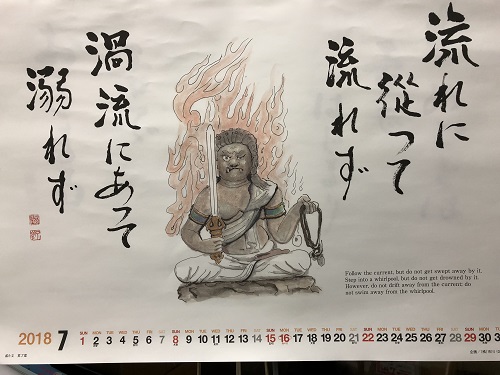 流れに
從つて
流れず
渦流にあって
溺れず
Follow the current, but do not get swept away by it.
Step into a whirlpool, but do not get drowned by it.
However, do not drift away from the current; do
not swim away from the whirlpool.
2018 7
SUN MON TUE WED THU FRI SAT SUN MON TUE WED THU FRI SAT SUN MON TUE WED THU FRI SAT SUN MON TUE WED THU FRI SAT SUN MON
1 2 3 4 5 6 7 8 9 10 11 12 13 14 15 16 17 18 19 20 21 22 23 24 25 26 27 28 29 30